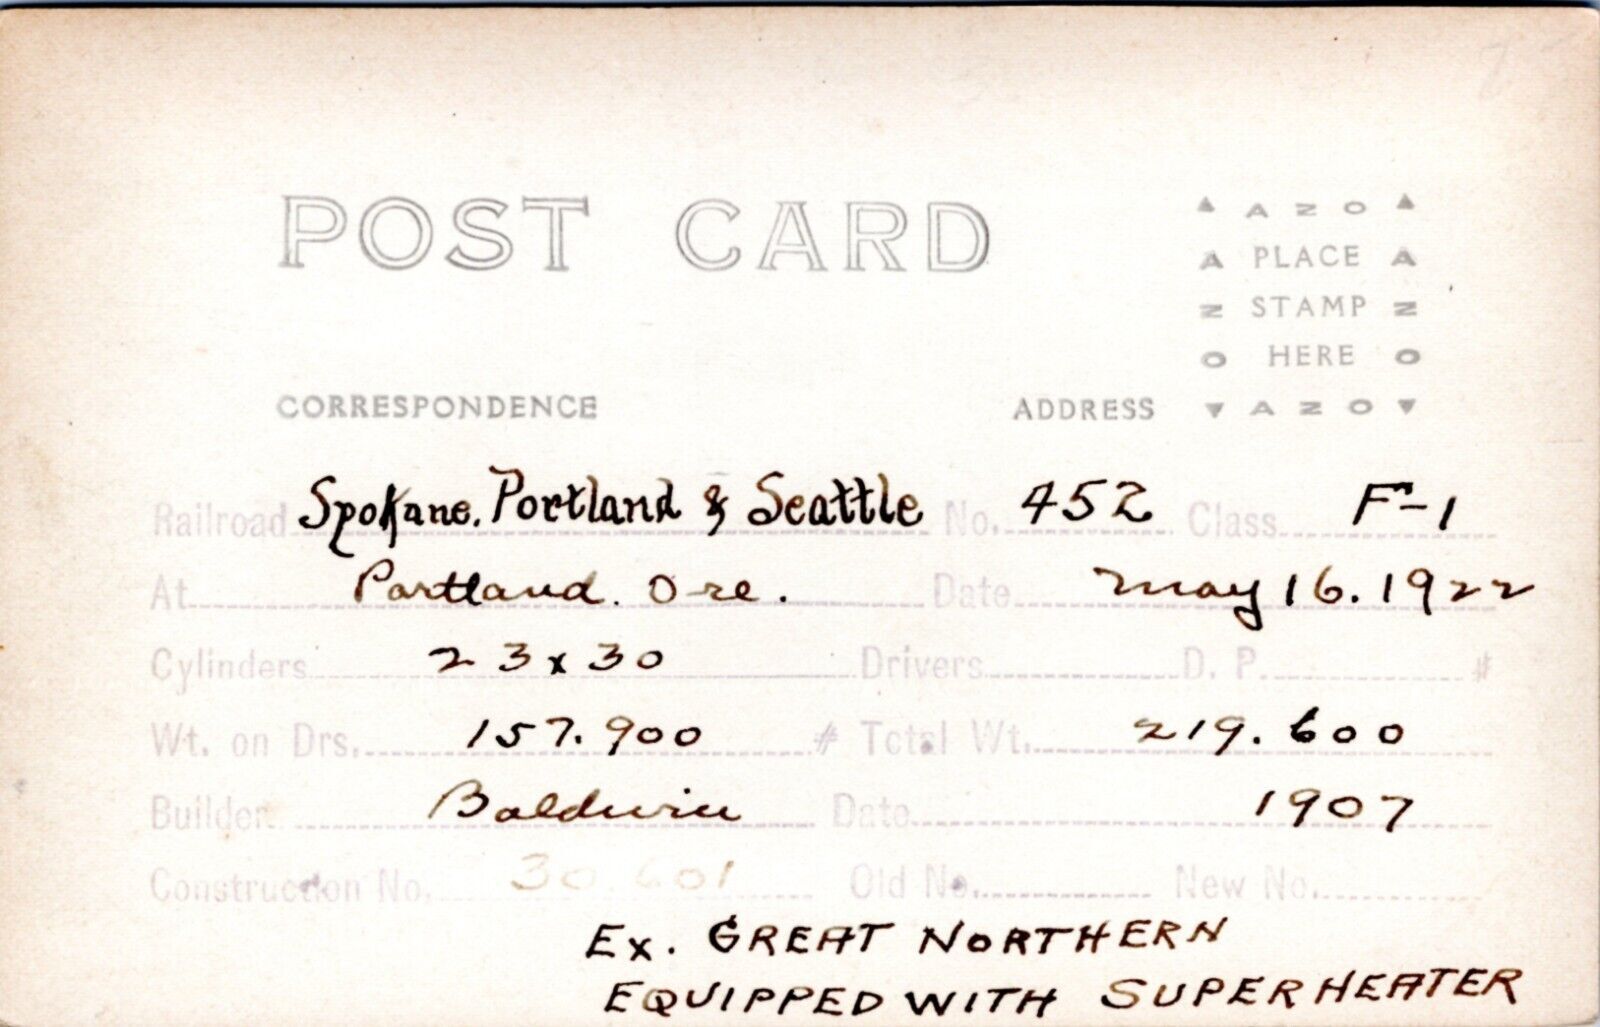 POST CARD
▲ AZO ▲
A PLACE A
Z STAMP Z
O HERE O
CORRESPONDENCE ADDRESS ▼ AZO ▼
Railroad Spokane, Portland & Seattle No. 452 Class F-1
At Portland. Ore. Date May 16. 1922
Cylinders 23x30 Drivers D. P. #
Wt. on Drs. 157.900 # Total Wt. 219.600
Builder Baldwin Date 1907
Construction No. 30.601 Old No. New No.
Ex. GREAT NORTHERN
EQUIPPED WITH SUPERHEATER